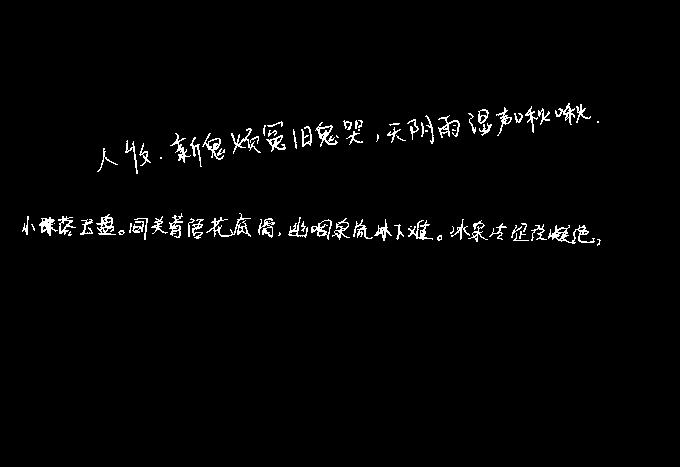 人收.新鬼烦冤旧鬼哭,天阴雨湿声啾啾.
小珠落玉盘。间关莺语花底滑,幽咽泉流冰下难。冰泉冷涩弦凝绝,